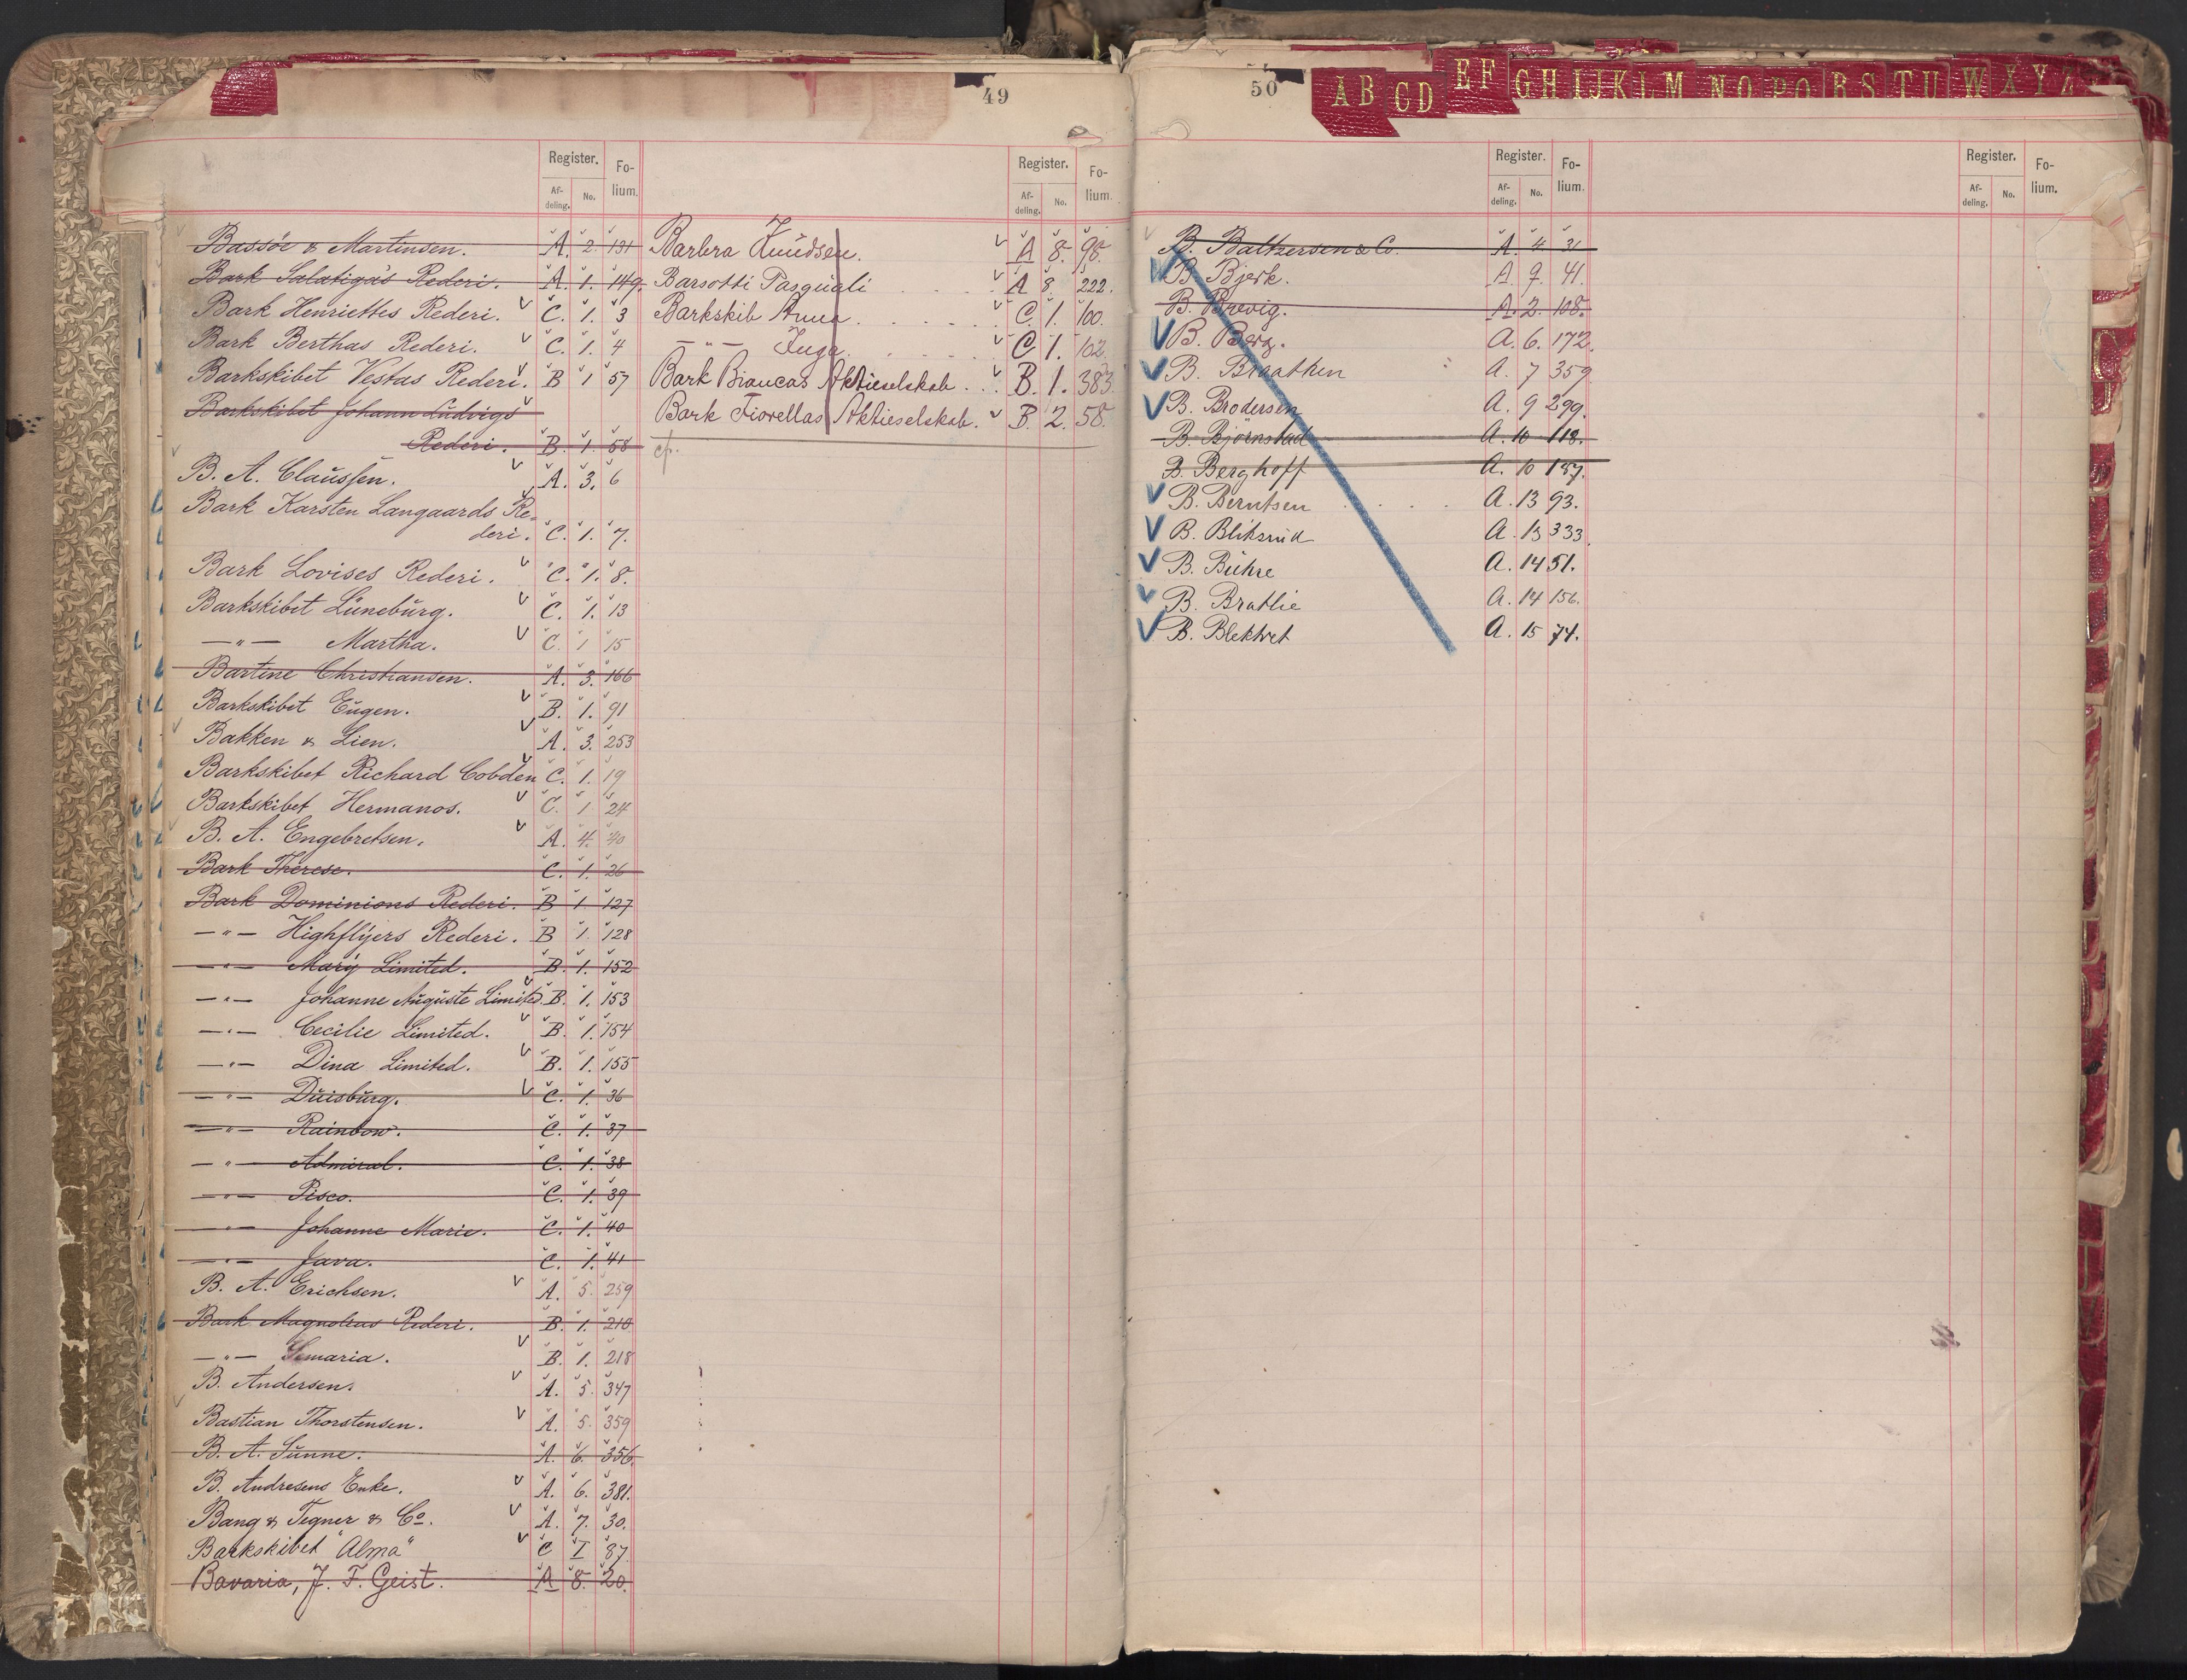 49
Register. Fo-
Af- No. lium.
deling.
Bassøe & Martinsen. A. 2. 131
Bark Salatiga's Rederi. A. 1. 149.
Bark Henriettes Rederi. C. 1. 3
Bark Berthas Rederi. C. 1. 4
Barkskibet Vestas Rederi. B 1 57
Barkskibet Johann Ludvigs
Rederi. B. 1. 58
B. A. Claussen. A. 3. 6
Bark Karsten Langaards Re-
deri. C. 1. 7.
Bark Lovises Rederi. C. 1. 8.
Barkskibet Lüneburg. C. 1. 13
—"— Martha. C. 1 15
Bartine Christiansen. A. 3. 166
Barkskibet Eugen. B. 1. 91
Bakken & Lien. A. 3. 253
Barkskibet Richard Cobden C. 1. 19
Barkskibet Hermanos. C. 1 24
B. A. Engebretsen. A. 4. 40
Bark Therese. C. 1. 26
Bark Dominions Rederi. B 1. 127
—"— Highflyers Rederi. B 1. 128
—"— Mary Limited. B. 1. 152
—"— Johanne Auguste Limited. B. 1. 153
—"— Cecilie Limited. B. 1. 154
—"— Dina Limited. B. 1. 155
—"— Duisburg. C. 1. 36
—"— Rainbow. C. 1. 37
—"— Admiral. C. 1. 38
—"— Pisco. C. 1. 39
—"— Johanne Marie. C. 1. 40
—"— Java. C. 1. 41
B. A. Erichsen. A. 5. 259
Bark Magnolias Rederi. B. 1. 210
—"— Semaria. B. 1. 218
B. Andersen. A. 5. 347
Bastian Thorstensen. A. 5. 359
B. A. Sunne. A. 6. 356.
B. Andresens Enke. A. 6. 381.
Bang & Tegner & Co. A. 7. 30.
Barkskibet "Alma" C I 87
Bavaria, J. F. Geist. A 8. 20.
Register. Fo-
Af- No. lium.
deling.
Barbra Knudsen. A 8. 98.
Barsotti Pasquali A 8. 222.
Barkskib Anna C. 1. 100.
—"— Inga. C 1. 102
Bark Biancas Aktieselskab. B. 1. 383.
Bark Fiorellas Aktieselskab. B. 2. 58.
cfr.
50
A B C D E F G H I J K L M N O P Q R S T U W X Y Z
Register. Fo-
Af- No. lium.
deling.
B. Baltzersen & Co. A. 4 31
B. Bjerk. A 9. 41.
B. Brevig. A. 2. 108.
B. Berg. A. 6. 172.
B. Braathen A. 7 359
B. Brodersen A. 9 299.
B. Björnstad A. 10 118.
B. Berghoff A. 10 187.
B. Berntsen A. 13 93.
B. Bliksrud A. 13 333.
B. Bühre A. 14 51.
B. Bratlie A. 14 156.
B. Blektvet A. 15 74.
Register. Fo-
Af- No. lium.
deling.